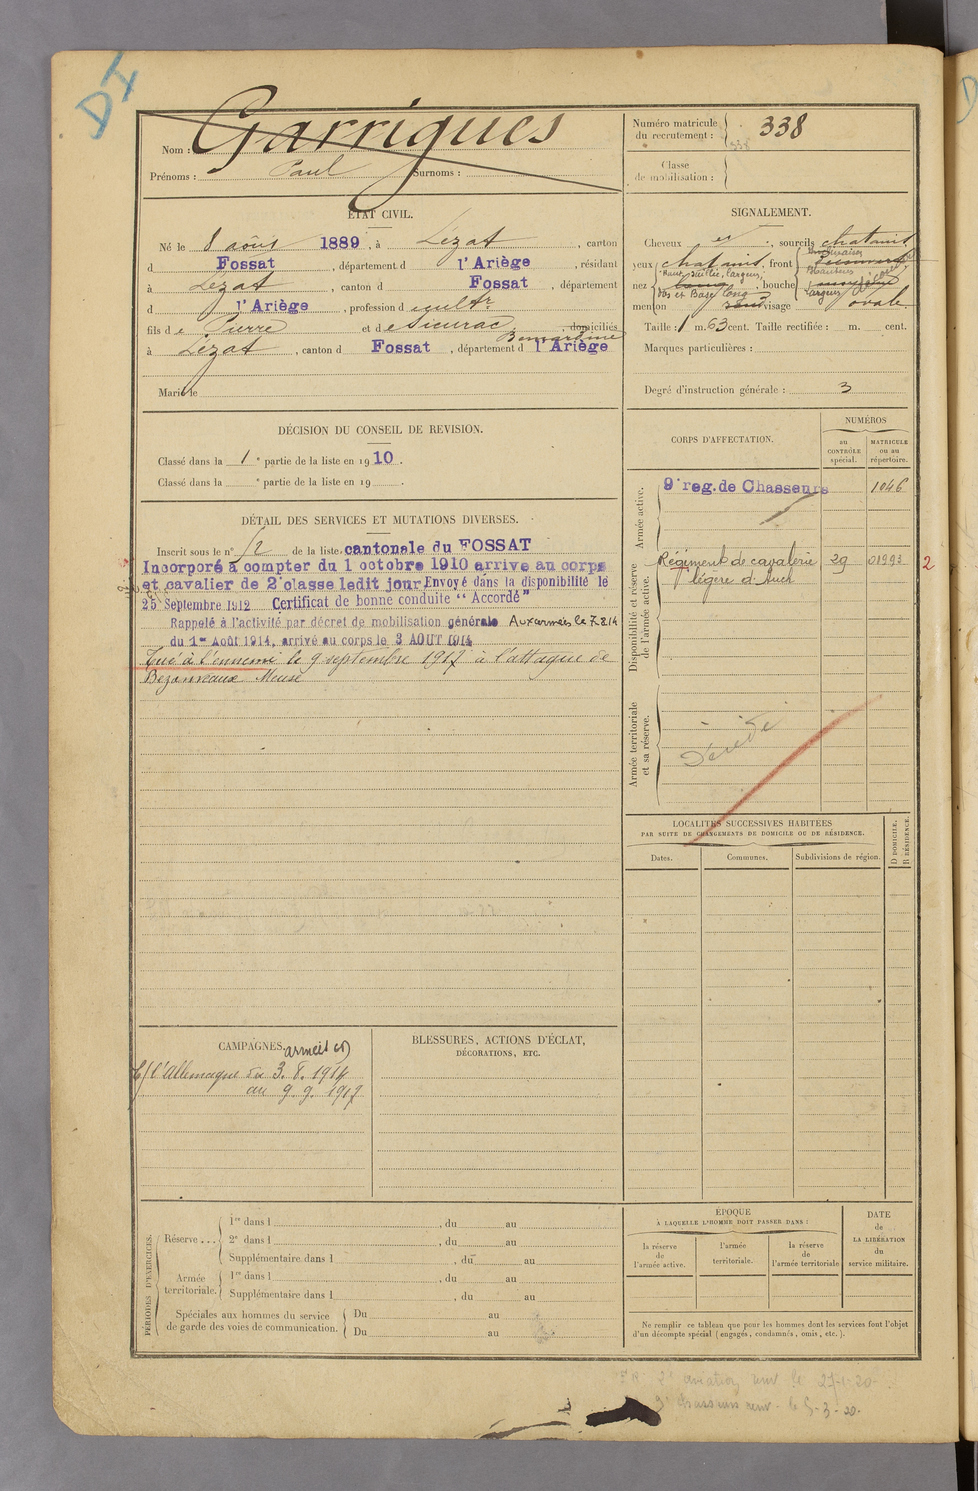 DI
Nom : Garrigues
Prénoms : Paul Surnoms :
Numéro matricule du recrutement : 338
338
Classe de mobilisation :
ÉTAT CIVIL.
Né le 8 août 1889, à Lézat, canton
d Fossat, département d l'Ariège, résidant
à Lézat, canton d Fossat, département
d l'Ariège, profession d cultr
fils de Pierre et de Sicurac Bernardine, domiciliés
à Lézat, canton d Fossat, département d l'Ariège
Marié le
SIGNALEMENT.
Cheveux et, sourcils chatains
yeux chatains, front
nez Haut, saillie, largeur, bouche
Dos et Base long
menton visage ovale
Taille : 1 m. 63 cent. Taille rectifiée : m. cent.
Marques particulières :
Degré d'instruction générale : 3
DÉCISION DU CONSEIL DE REVISION.
Classé dans la 1e partie de la liste en 1910.
Classé dans la e partie de la liste en 19 .
DÉTAIL DES SERVICES ET MUTATIONS DIVERSES.
Inscrit sous le n° 12 de la liste cantonale du FOSSAT
Incorporé à compter du 1 octobre 1910 arrive au corps
et cavalier de 2e classe ledit jour Envoyé dans la disponibilité le
25 Septembre 1912 Certificat de bonne conduite "Accordé"
Rappelé à l'activité par décret de mobilisation générale Aux armées le 7.8.14
du 1er Août 1914, arrivé au corps le 3 AOUT 1914
Tué à l'ennemi le 9 septembre 1917 à l'attaque de
Bezonvaux Meuse
CORPS D'AFFECTATION.
NUMÉROS
au CONTRÔLE spécial.
MATRICULE ou au répertoire.
Armée active.
9e reg. de Chasseurs 1046
Disponibilité et réserve de l'armée active.
Régiment de cavalerie 29 01993 2
légère d'Auch
Armée territoriale et sa réserve.
Décédé
LOCALITÉS SUCCESSIVES HABITÉES
PAR SUITE DE CHANGEMENTS DE DOMICILE OU DE RÉSIDENCE.
Dates.
Communes.
Subdivisions de région.
D DOMICILE.
R RÉSIDENCE.
CAMPAGNES.
armées
C/ l'Allemagne du 3.8.1914
au 9.9.1917
BLESSURES, ACTIONS D'ÉCLAT,
DÉCORATIONS, ETC.
PÉRIODES D'EXERCICES.
Réserve ...
1re dans l , du au
2e dans l , du au
Supplémentaire dans l , du au
Armée territoriale.
1re dans l , du au
Supplémentaire dans l , du au
Spéciales aux hommes du service
de garde des voies de communication.
Du au
Du au
ÉPOQUE
À LAQUELLE L'HOMME DOIT PASSER DANS :
la réserve de l'armée active.
l'armée territoriale.
la réserve de l'armée territoriale
DATE
de
LA LIBÉRATION
du
service militaire.
Ne remplir ce tableau que pour les hommes dont les services font l'objet
d'un décompte spécial (engagés, condamnés, omis, etc.).
2e aviation le 27-1-20
9e chasseurs le 5-3-20